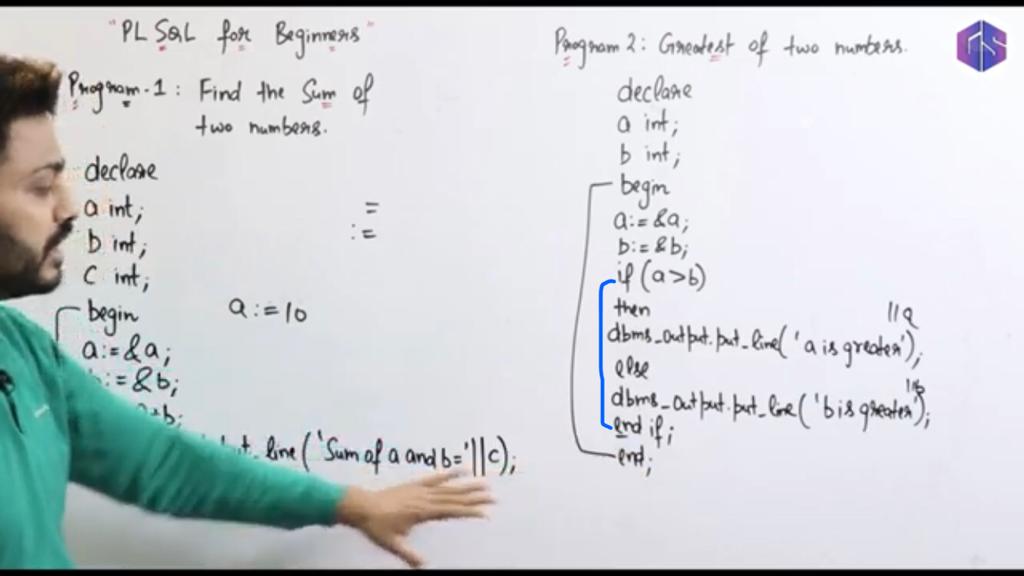 "PL SQL for Beginners"
Program-1: Find the Sum of
two numbers.
declare
a int;
b int;
c int;
begin
a:=&a;
:=&b;
b;
line('Sum of a and b='||c);
=
:=
a:=10
Program 2: Greatest of two numbers.
declare
a int;
b int;
begin
a:=&a;
b:=&b;
if (a>b)
then
||a
dbms_output.put_line('a is greater');
else
||b
dbms_output.put_line('b is greater');
end if;
end;